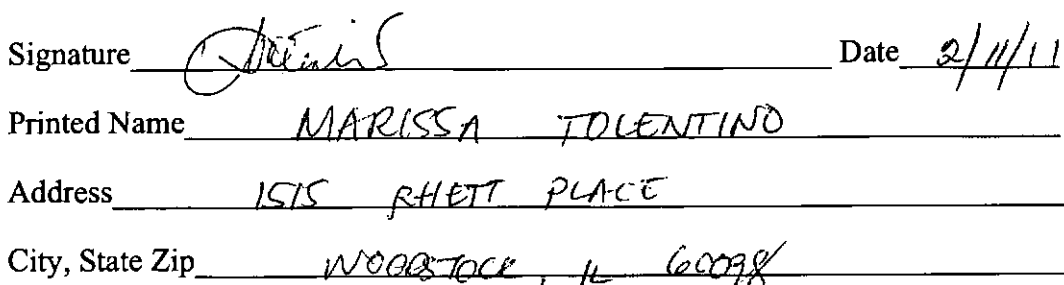 Signature Date 2/11/11
Printed Name MARISSA TOLENTINO
Address 1515 RHETT PLACE
City, State Zip WOODSTOCK, IL 60098